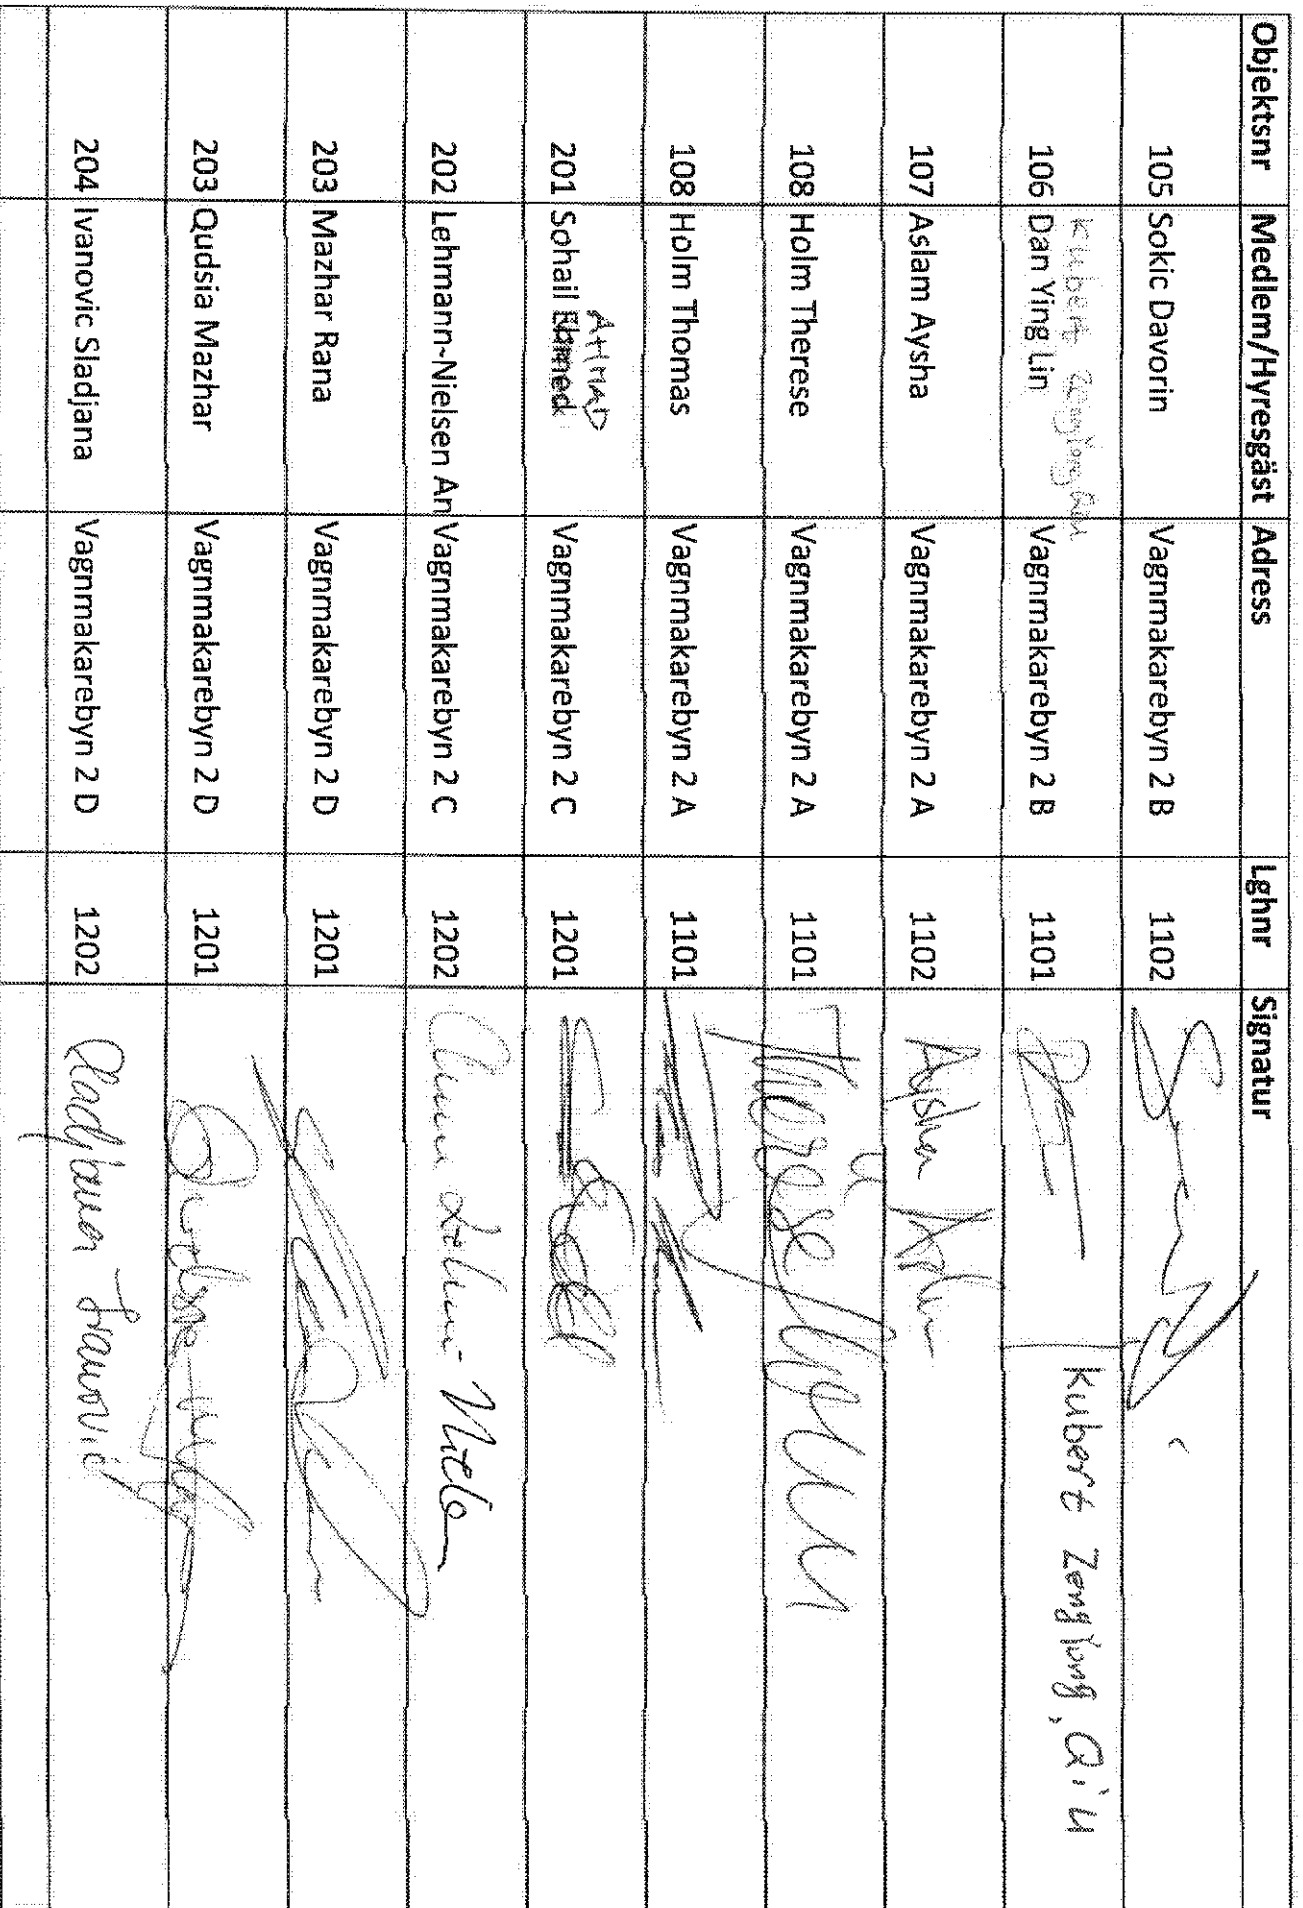 Objektsnr Medlem/Hyresgäst Adress Lghnr Signatur
105 Sokic Davorin Vagnmakarebyn 2 B 1102
Kubert
106 Dan Ying Lin Vagnmakarebyn 2 B 1101 Kubert Zenglong, Qiu
107 Aslam Aysha Vagnmakarebyn 2 A 1102 Aysha Aslam
108 Holm Therese Vagnmakarebyn 2 A 1101 Therese Holm
108 Holm Thomas Vagnmakarebyn 2 A 1101
AHMAD
201 Sohail Ehmed Vagnmakarebyn 2 C 1201
202 Lehmann-Nielsen An Vagnmakarebyn 2 C 1202
203 Mazhar Rana Vagnmakarebyn 2 D 1201
203 Qudsia Mazhar Vagnmakarebyn 2 D 1201
204 Ivanovic Sladjana Vagnmakarebyn 2 D 1202 Sladjana Ivanović